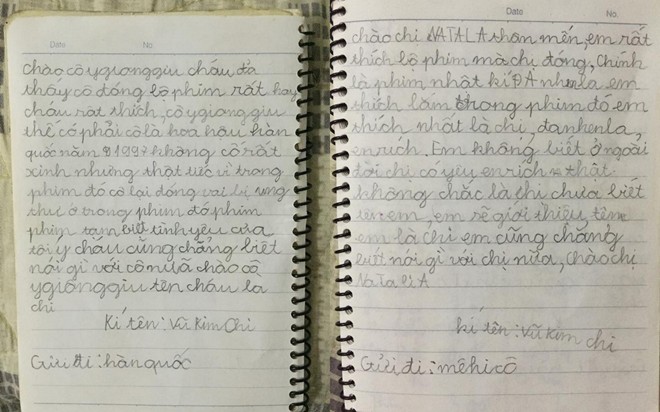 Date No.
chào cô ygionggiu cháu đã
thấy cô đóng bộ phim rất hay
cháu rất thích, cô ygiong giu
thế có phải cô là hoa hậu hàn
quốc năm 1997 không cô rất
xinh nhưng thật tức vì trong
phim đó cô lại đóng vai bị ung
thư ở trong phim đó phim
phim tạm biệt tình yêu của
tôi ý cháu cũng chẳng biết
nói gì với cô nữa chào cô
ygionggiu tên cháu là
chi
Kí tên: Vũ Kim Chi
Gửi đi: hàn quốc
Date No.
chào chị NATALA thân mến, em rất
thích bộ phim mà chị đóng, Chính
là phim nhật kí PA nhenla em
thích lắm trong phim đó em
thích nhất là chị, đanhenla,
enrich. Em không biết ở ngoài
đời chị có yêu enrich thật
không chắc là chị chưa biết
tên em, em sẽ giới thiệu, tên
em là Chi em cũng chẳng
biết nói gì với chị nữa, Chào chị
NaTaLiA
kí tên: Vũ Kim chi
Gửi đi: mêhicô